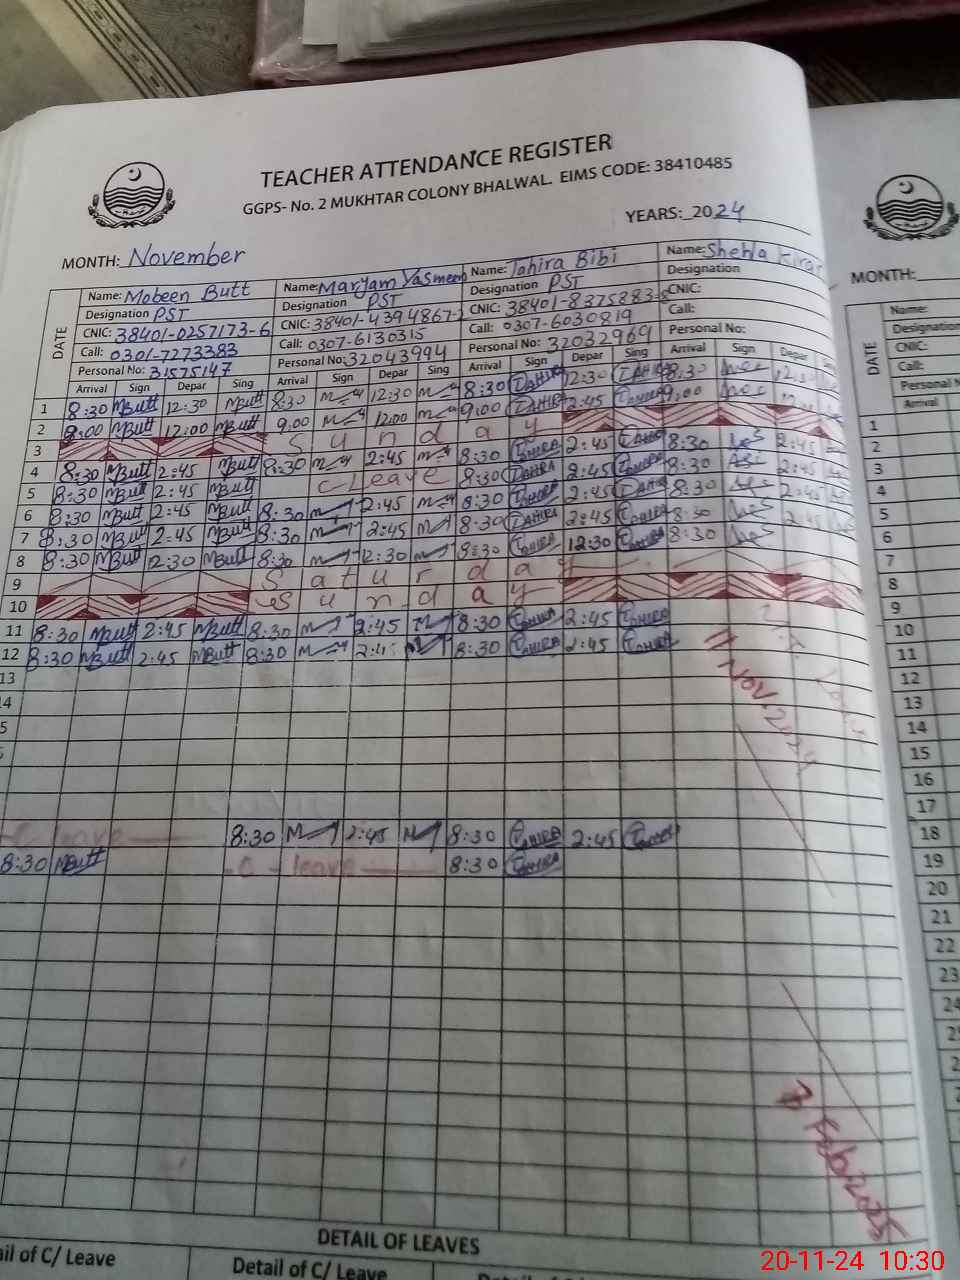 TEACHER ATTENDANCE REGISTER
GGPS- No. 2 MUKHTAR COLONY BHALWAL. EIMS CODE: 38410485
YEARS: 2024
MONTH: November
MONTH:
DATE
Name: Mobeen Butt Name: Maryam Yasmeen Name: Tahira Bibi Name: Shehla Kiran
Designation PST Designation PST Designation PST Designation
CNIC: 38401-0257173-6 CNIC: 38401-4394867-2 CNIC: 38401-8375883-8 CNIC:
Call: 0301-7273383 Call: 0307-6130315 Call: 0307-6030819 Call:
Personal No: 31575147 Personal No: 32043994 Personal No: 32032969 Personal No:
Arrival Sign Depar Sing Arrival Sign Depar Sing Arrival Sign Depar Sing Arrival Sign Depar
1 8:30 MButt 12:30 MButt 8:30 12:30 8:30 TAHIRA 12:30 TAHIRA 8:30
2 9:00 MButt 12:00 MButt 9:00 12:00 9:00 TAHIRA 2:45 TAHIRA 9:00
3 Sunday
4 8:30 MButt 2:45 MButt 8:30 2:45 8:30 TAHIRA 2:45 TAHIRA 8:30 2:45
5 8:30 MButt 2:45 MButt C-Leave 8:30 TAHIRA 2:45 TAHIRA 8:30 2:45
6 8:30 MButt 2:45 MButt 8:30 2:45 8:30 TAHIRA 2:45 TAHIRA 8:30 2:45
7 8:30 MButt 2:45 MButt 8:30 2:45 8:30 TAHIRA 2:45 TAHIRA 8:30 2:45
8 8:30 MButt 12:30 MButt 8:30 12:30 8:30 TAHIRA 12:30 TAHIRA 8:30
9 Saturday
10 Sunday
11 8:30 MButt 2:45 MButt 8:30 2:45 8:30 TAHIRA 2:45 TAHIRA
12 8:30 MButt 2:45 MButt 8:30 8:30 TAHIRA 2:45 TAHIRA
13
14
5
C-leave 8:30 2:45 8:30 TAHIRA 2:45 TAHIRA
8:30 MButt C-leave 8:30 TAHIRA
11 Nov. 2024
Feb 2025
DETAIL OF LEAVES
ail of C/ Leave
Detail of C/ Leave
DATE
Name:
Designation
CNIC:
Call:
Personal N
Arrival
1
2
3
4
5
6
7
8
9
10
11
12
13
14
15
16
17
18
19
20
21
22
23
24
20-11-24 10:30